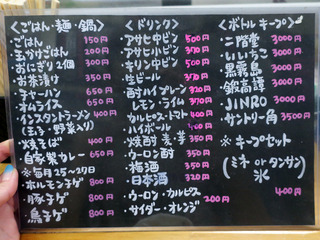 ＜ごはん・麺・鍋＞
ごはん 150円
玉かけごはん 200円
おにぎり2個 300円
お茶漬け 350円
チャーハン 650円
オムライス 650円
インスタントラーメン 400円
(玉子・野菜入り)
焼きそば 400円
自家製カレー 650円
※毎月25〜27日
ホルモンチゲ 800円
豚チゲ 800円
鳥チゲ 800円
＜ドリンク＞
アサヒ中ビン 500円
アサヒ小ビン 370円
キリン中ビン 500円
生ビール 370円
酎ハイプレーン 320円
レモン・ライム 370円
カルピス・トマト 400円
ハイボール 400円
焼酎 麦・芋 350円
ウーロン酎 350円
梅酒 350円
日本酒 320円
ウーロン・カルピス
サイダー・オレンジ 200円
＜ボトルキープ＞
二階堂 3000円
いいちこ 3000円
黒霧島 3000円
鍛高譚 3000円
JINRO 3000円
サントリー角 3500
※キープセット
(ミネ or タンサン)
氷
400円